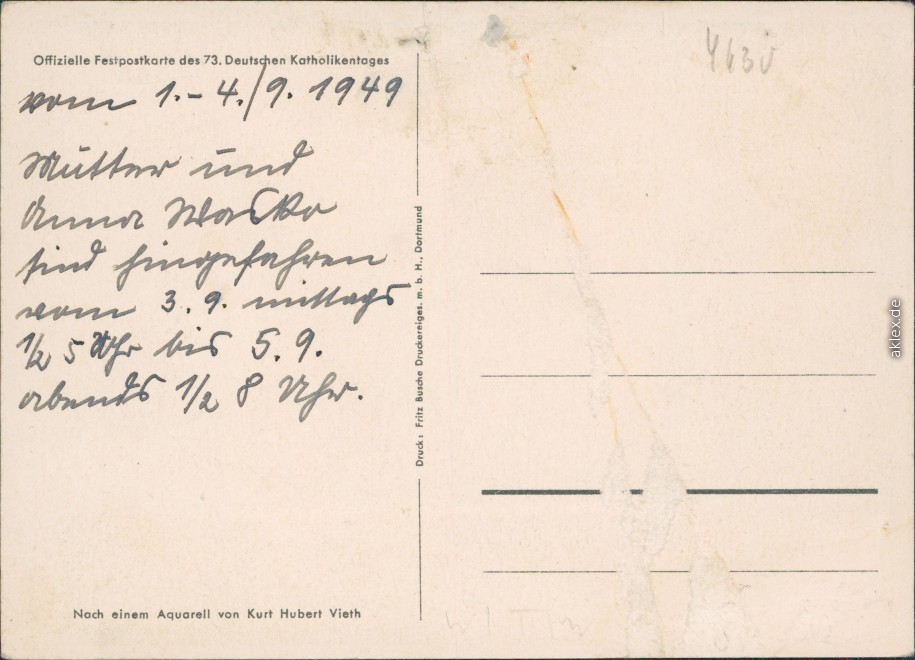 Offizielle Festpostkarte des 73. Deutschen Katholikentages
vom 1.-4./9. 1949
Mutter und
Anna Wasko
sind hingefahren
vom 3. 9. mittags
1/2 5 Uhr bis 5. 9.
abends 1/2 8 Uhr.
Nach einem Aquarell von Kurt Hubert Vieth
Druck: Fritz Busche Druckereiges. m. b. H., Dortmund
aklex.de